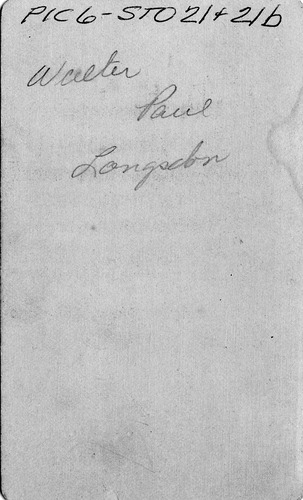 PIC6-STO21+21b
Walter
Paul
Longsdon